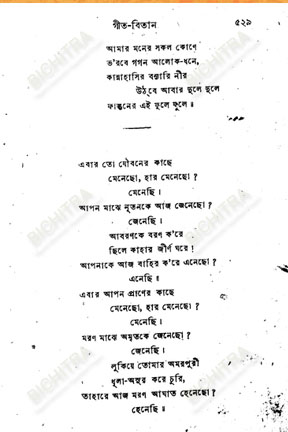 গীত-বিতান ৫২৯
আমার মনের সকল কোণে
ভ'রবে গগন আলোক-ধনে,
কান্নাহাসির বন্যারি নীর
উঠ্‌বে আবার দুলে দুলে
ফাল্গুনের এই ফুলে ফুলে॥
এবার তো যৌবনের কাছে
মেনেছো, হার মেনেছো?
মেনেছি।
আপন মাঝে নূতনকে আজ জেনেছো?
জেনেছি।
আবরণকে বরণ ক'রে
ছিলে কাহার জীর্ণ ঘরে!
আপনাকে আজ বাহির ক'রে এনেছো?
এনেছি॥
এবার আপন প্রাণের কাছে
মেনেছো, হার মেনেছো?
মেনেছি।
মরণ মাঝে অমৃতকে জেনেছো?
জেনেছি।
লুকিয়ে তোমার অমরপুরী
ধূলা-অসুর করে চুরি,
তাহারে আজ মরণ আঘাত হেনেছো?
হেনেছি॥
BICHITRA
BICHITRA
BICHITRA
BICHITRA
BICHITRA
BICHITRA